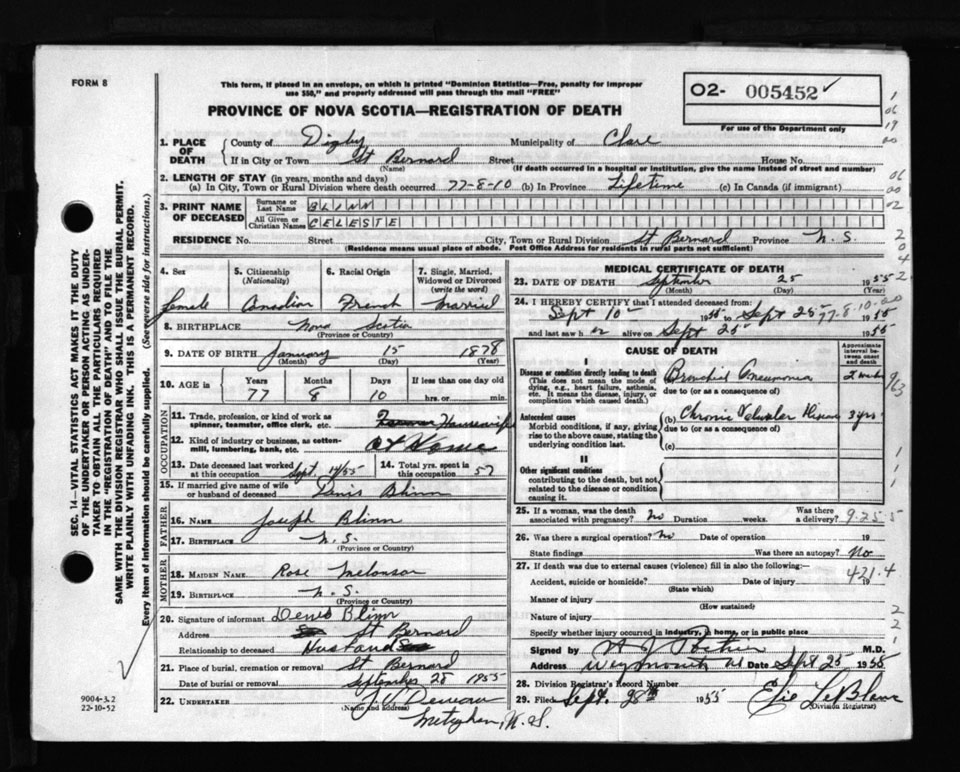 FORM 8
This form, if placed in an envelope, on which is printed "Dominion Statistics—Free, penalty for improper
use $50," and properly addressed will pass through the mail "FREE"
PROVINCE OF NOVA SCOTIA—REGISTRATION OF DEATH
O2- 005452
For use of the Department only
1. PLACE OF DEATH County of Digby Municipality of Clare
If in City or Town St Bernard Street House No.
(Name) (If death occurred in a hospital or institution, give the name instead of street and number)
2. LENGTH OF STAY (in years, months and days)
(a) In City, Town or Rural Division where death occurred 77-8-10 (b) In Province Lifetime (c) In Canada (if immigrant)
3. PRINT NAME OF DECEASED Surname or Last Name BLINN
All Given or Christian Names CELESTE
RESIDENCE No. Street City, Town or Rural Division St Bernard Province N.S.
(Residence means usual place of abode. Post Office Address for residents in rural parts not sufficient)
4. Sex 5. Citizenship (Nationality) 6. Racial Origin 7. Single, Married, Widowed or Divorced (write the word)
female Canadian French Married
8. BIRTHPLACE Nova Scotia
(Province or Country)
9. DATE OF BIRTH January 15 1878
(Month) (Day) (Year)
10. AGE in Years Months Days If less than one day old
77 8 10 hrs. or min.
OCCUPATION
11. Trade, profession, or kind of work as spinner, teamster, office clerk, etc. Housewife
12. Kind of industry or business, as cotton-mill, lumbering, bank, etc. At Home
13. Date deceased last worked at this occupation Sept 14/55 14. Total yrs. spent in this occupation 57
15. If married give name of wife or husband of deceased Blinn
FATHER
16. NAME Joseph Blinn
17. BIRTHPLACE N.S.
(Province or Country)
MOTHER
18. MAIDEN NAME Rose Melanson
19. BIRTHPLACE N.S.
(Province or Country)
20. Signature of informant Denis Blinn
Address St Bernard
Relationship to deceased Husband
21. Place of burial, cremation or removal St Bernard
Date of burial or removal September 28 1955
22. UNDERTAKER
(Name and address)
Meteghan, N.S.
MEDICAL CERTIFICATE OF DEATH
23. DATE OF DEATH September 25 1955
(Month) (Day) (Year)
24. I HEREBY CERTIFY that I attended deceased from:
Sept 10 1955 to Sept 25 77-8-10
and last saw h er alive on Sept 25 1955
CAUSE OF DEATH
Approximate interval between onset and death
I
Disease or condition directly leading to death
(This does not mean the mode of dying, e.g., heart failure, asthenia, etc. It means the disease, injury, or complication which caused death.)
Bronchial Pneumonia 2 weeks
due to (or as a consequence of)
Antecedent causes
Morbid conditions, if any, giving rise to the above cause, stating the underlying condition last.
(b) Chronic Valvular Disease 3 yrs
due to (or as a consequence of)
(c)
II
Other significant conditions
contributing to the death, but not related to the disease or condition causing it.
25. If a woman, was the death associated with pregnancy? No Duration weeks. Was there a delivery? 9-25-5
26. Was there a surgical operation? No Date of operation 19
State findings Was there an autopsy? No
27. If death was due to external causes (violence) fill in also the following:— 421.4
Accident, suicide or homicide? Date of injury 19
(State which)
Manner of injury
(How sustained)
Nature of injury
Specify whether injury occurred in industry, in home, or in public place
Signed by M.D.
Address Weymouth Date Sept 25 1955
28. Division Registrar's Record Number
29. Filed Sept. 28th 1955 Elie LeBlanc
(Division Registrar)
SEC. 14—VITAL STATISTICS ACT MAKES IT THE DUTY
OF THE UNDERTAKER OR PERSON ACTING AS UNDER-
TAKER TO OBTAIN ALL THE PARTICULARS REQUIRED
IN THE "REGISTRATION OF DEATH" AND TO FILE THE
SAME WITH THE DIVISION REGISTRAR WHO SHALL ISSUE THE BURIAL PERMIT.
WRITE PLAINLY WITH UNFADING INK. THIS IS A PERMANENT RECORD.
Every item of information should be carefully supplied. (See reverse side for instructions.)
9004-3.2
22-10-52